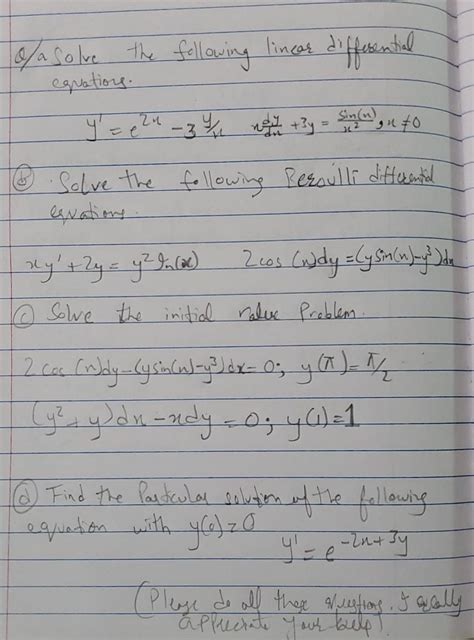 Q/a Solve the following linear differential
equations.
y' = e^2x - 3 y/x   x dy/dx + 3y = sin(x)/x^2, x ≠ 0
(b) Solve the following Beroulli differential
equations.
xy' + 2y = y^2 ln(x)   2 cos (x)dy = (y sin(x) - y^3)dx
(c) Solve the initial value Problem.
2 cos (x)dy - (y sin(x) - y^3)dx = 0; y(π) = π/2
(y^2 + y)dx - xdy = 0; y(1) = 1
(d) Find the Particular solution of the following
equation with y(0) = 0
y' = e^-2x+3y
(Please do all these questions. I really
appreciate your help)